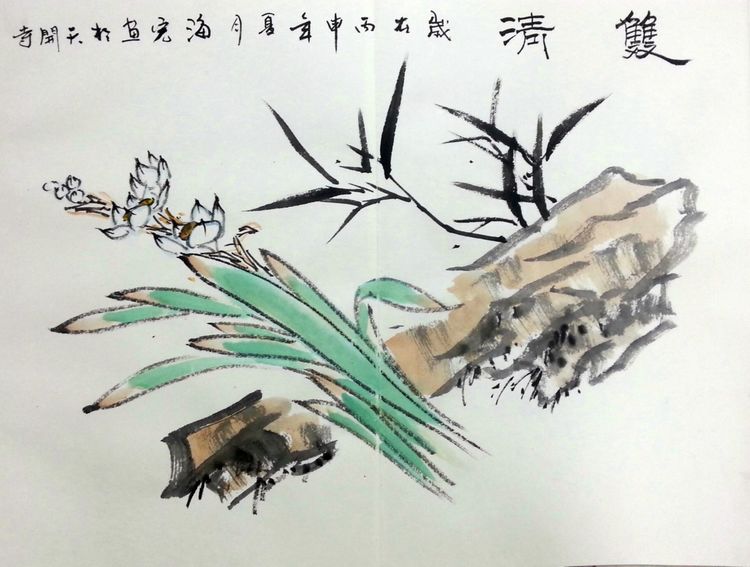 雙清
歲在丙申年夏月海完畫於天開寺